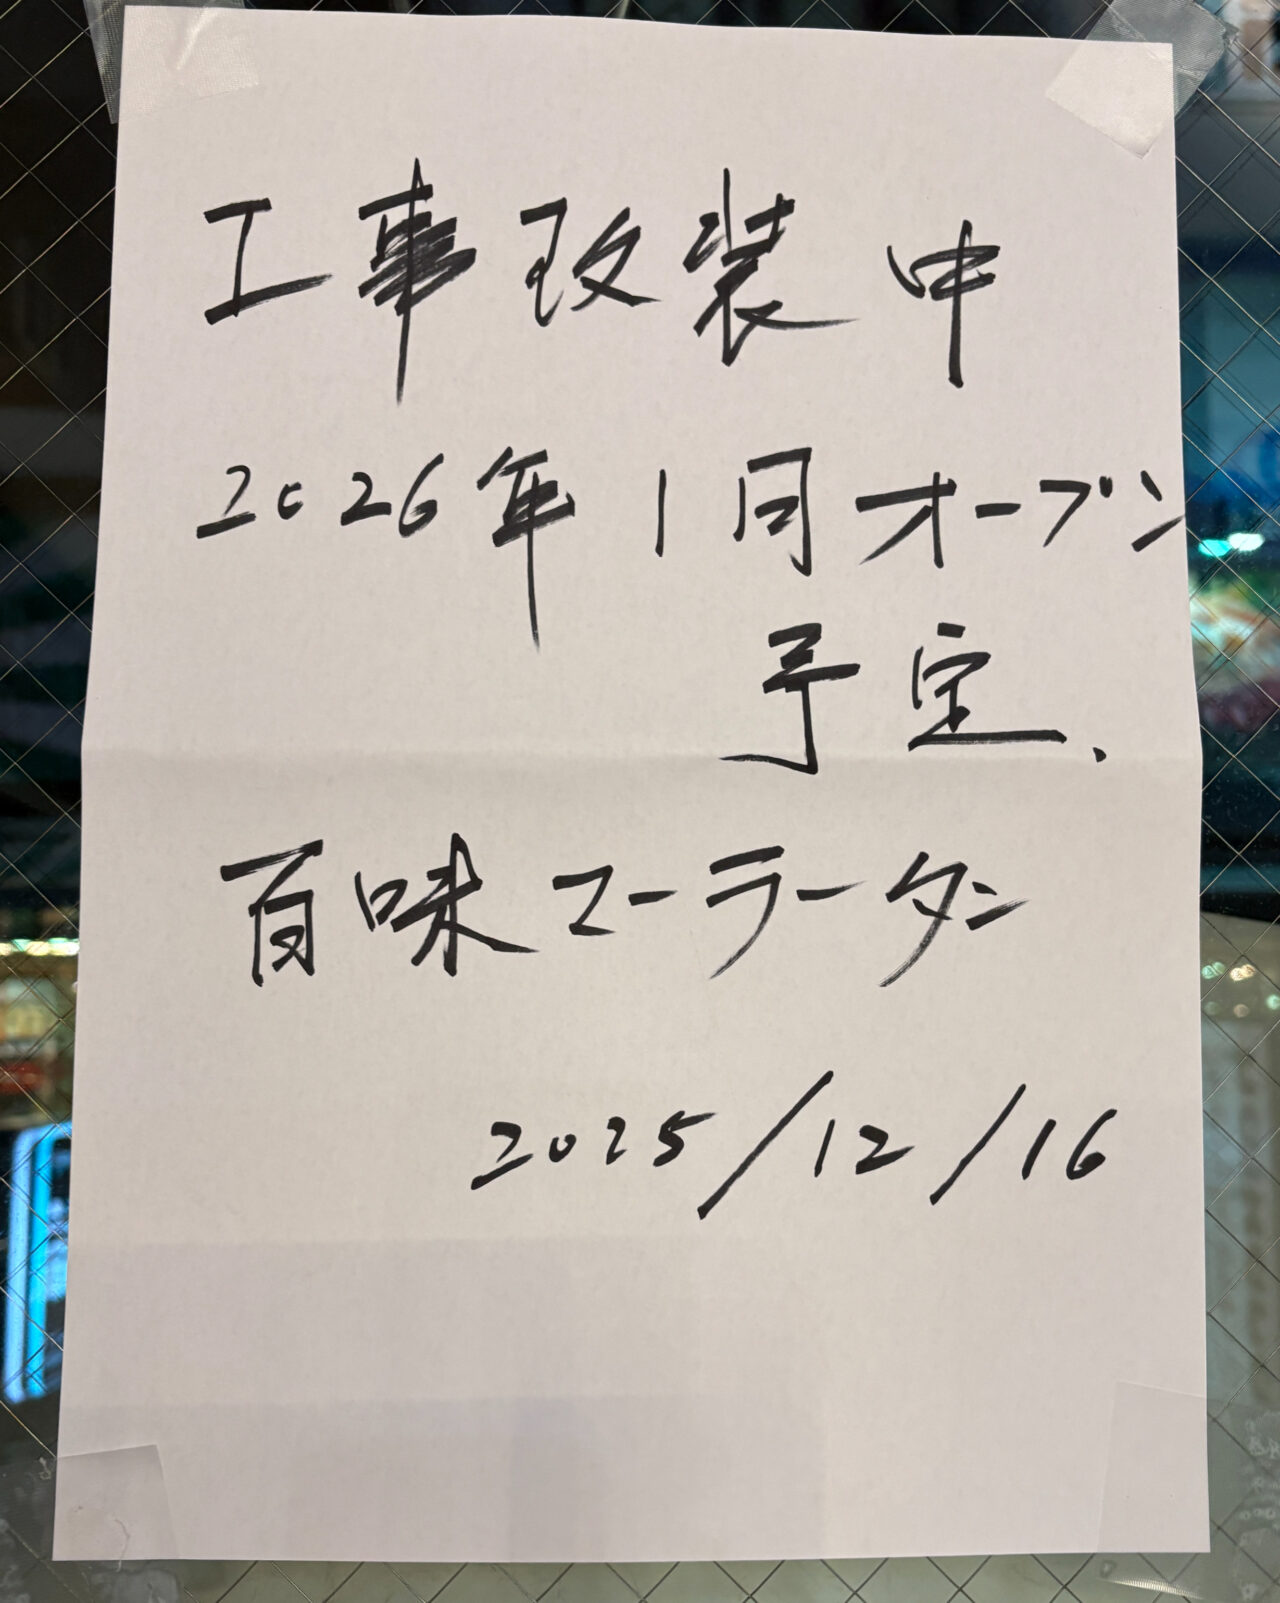 工事改装中
2026年1月オープン
予定、
百味マーラータン
2025/12/16